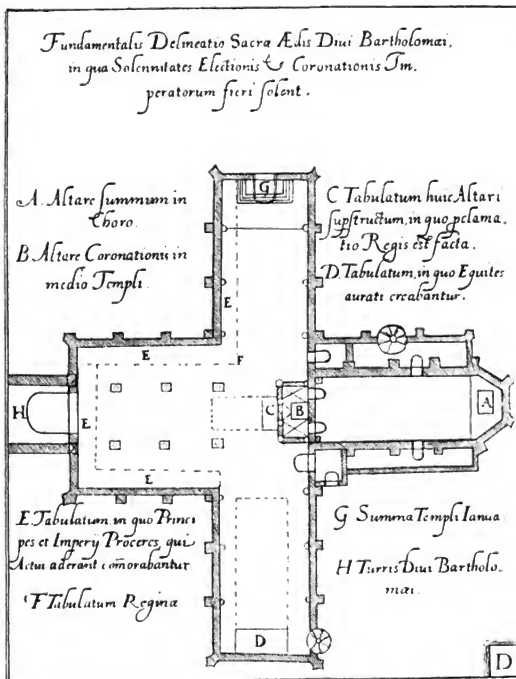 Fundamentalis Delineatio Sacræ Ædis Diui Bartholomæi,
in qua Solennitates Electionis & Coronationis Im,
peratorum fieri solent.
G
A. Altare summum in
Choro.
B. Altare Coronationis in
medio Templi.
C Tabulatum huic Altari
supstructum, in quo pclama
tio Regis est facta.
D. Tabulatum, in quo Equites
aurati creabantur.
E
E
F
H
E
C
B
A
E
E Tabulatum, in quo Princi
pes et Imperij Proceres, qui
Actui aderant comorabantur
F Tabulatum Reginæ
G Summa Templi Ianua.
H Turris Diui Bartholo,
mæi.
D
D